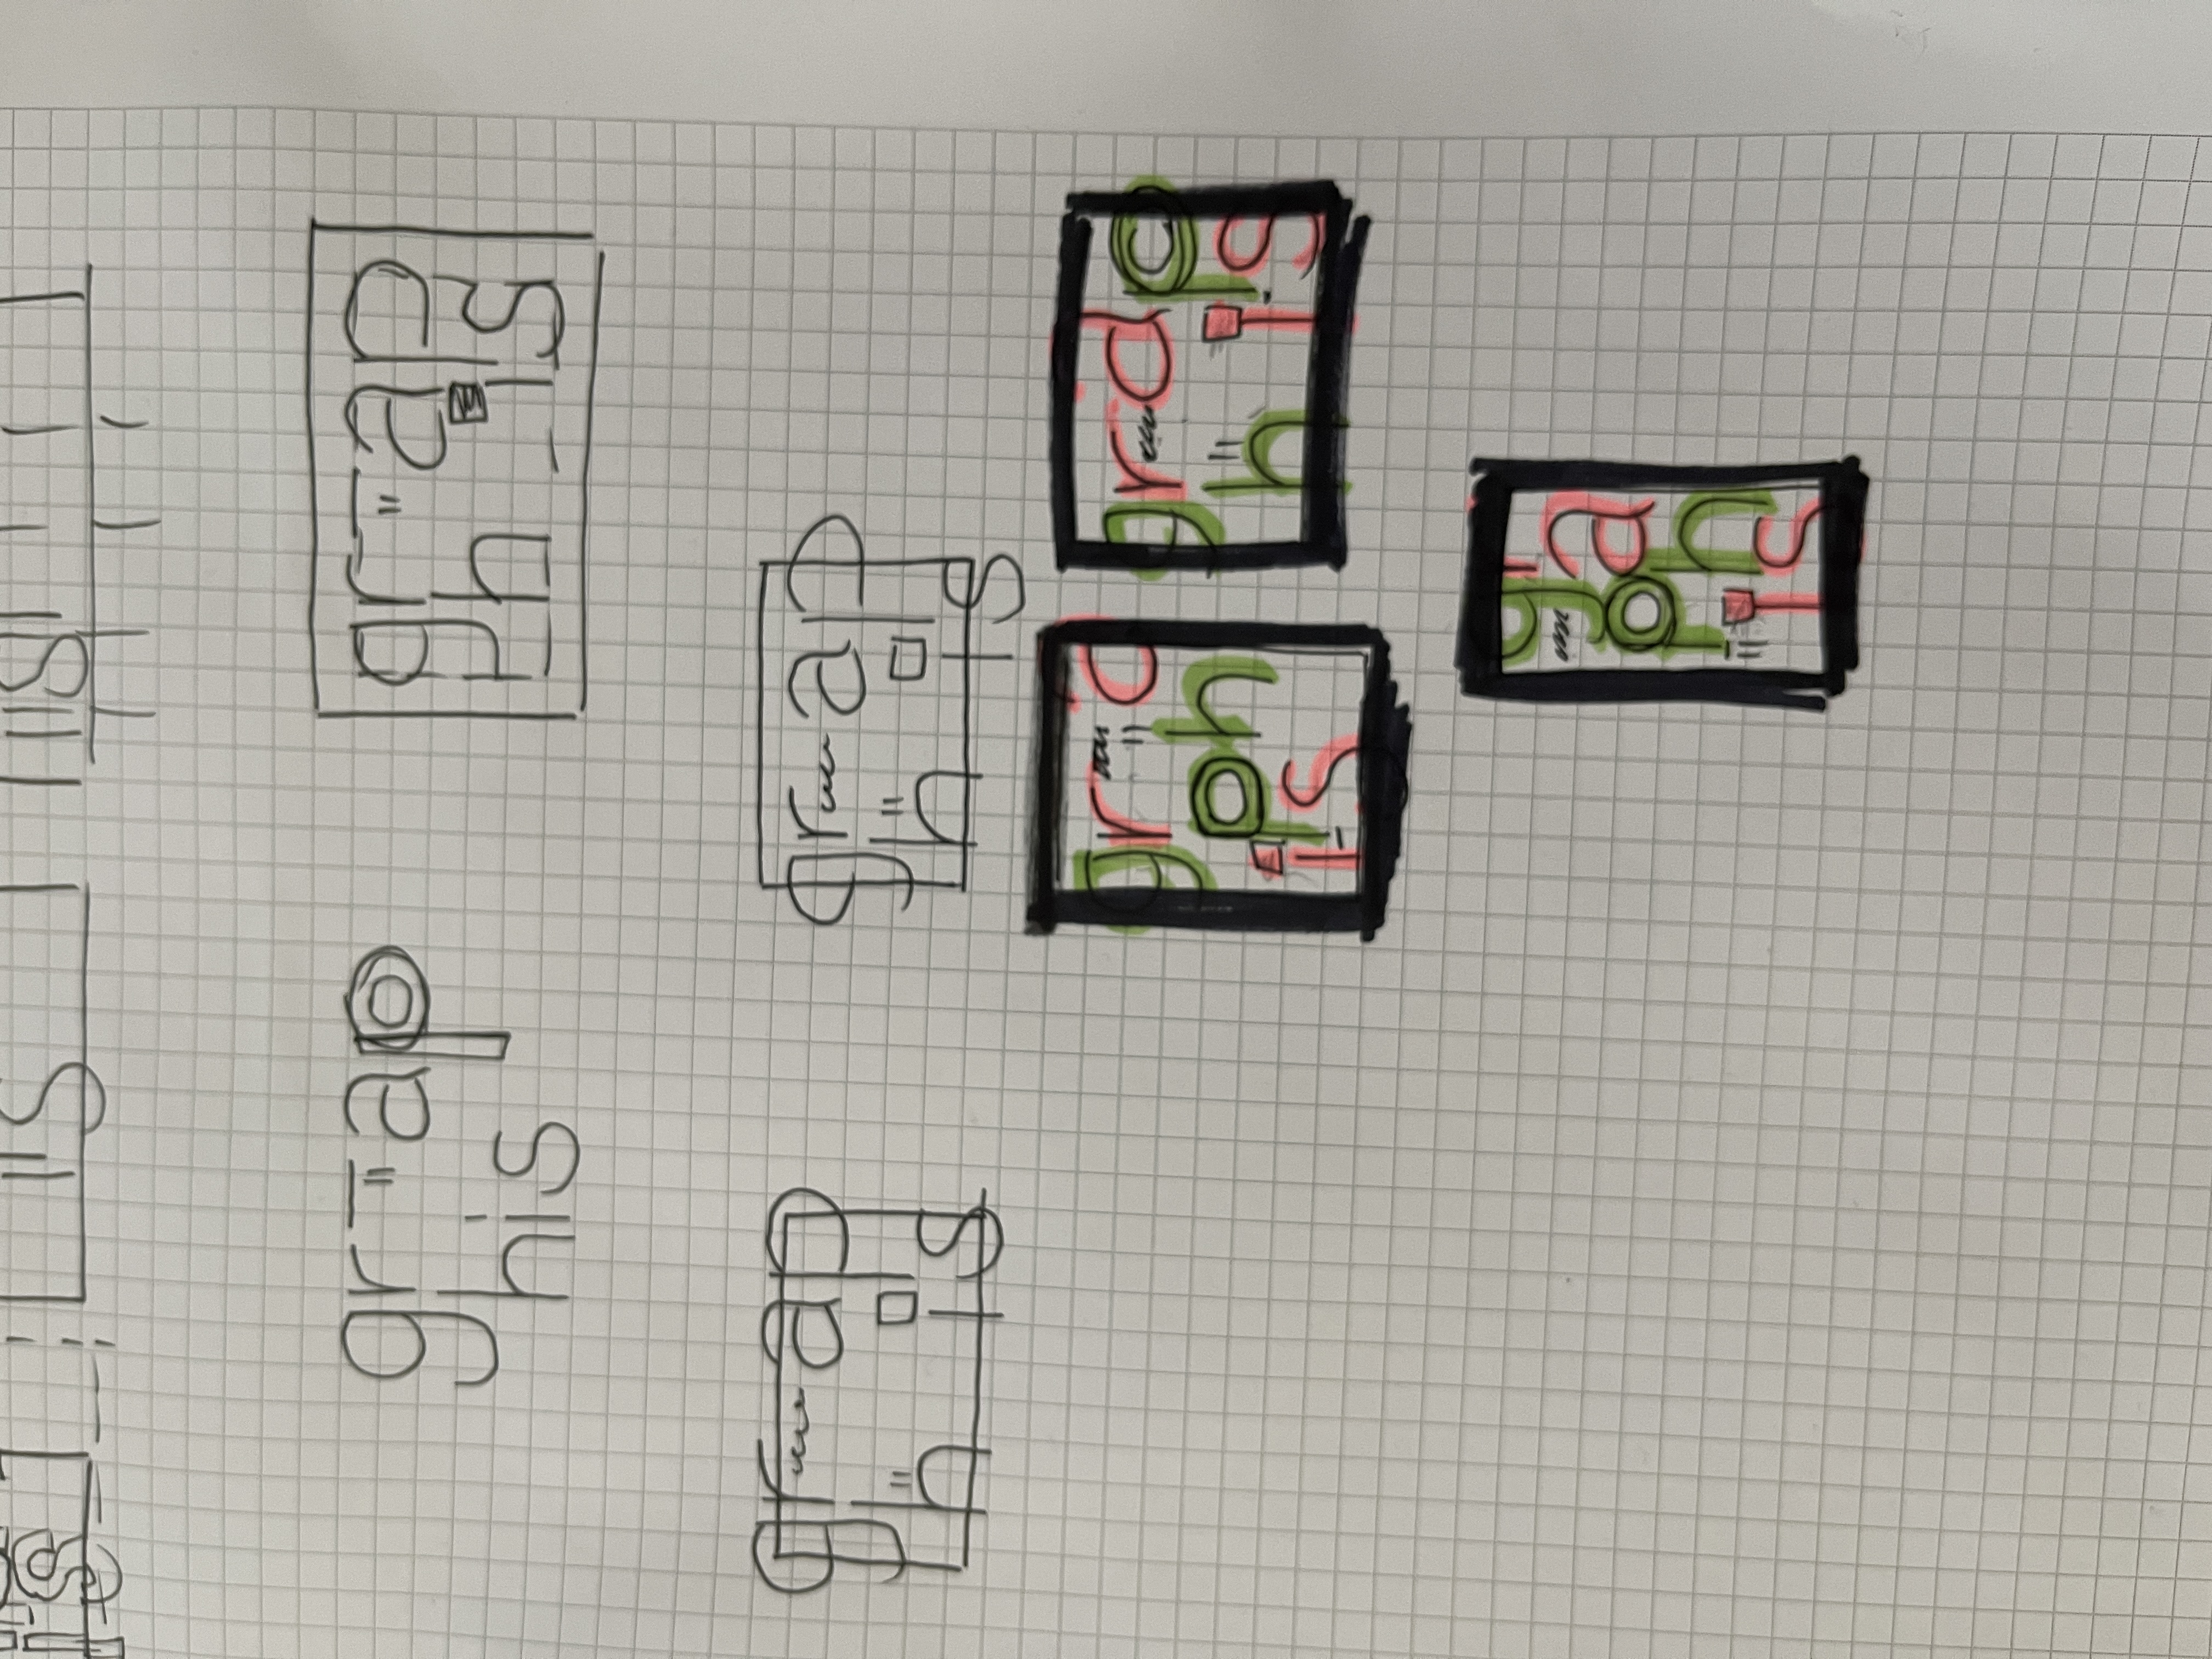 is
is
is
gr ap
his
gr ap
ph is
gr ap
h is
gr ap
h is
gr a
ph
is
gr ap
h is
gr
a
ph
is